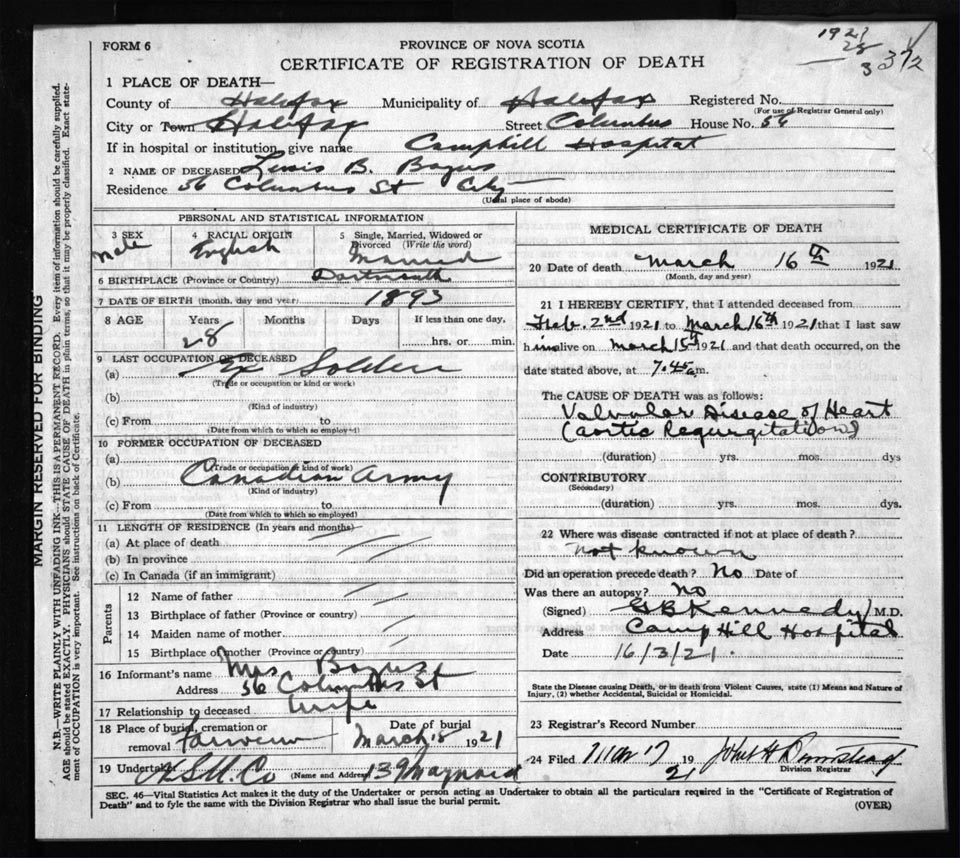 FORM 6
PROVINCE OF NOVA SCOTIA
1921
28
3 372
CERTIFICATE OF REGISTRATION OF DEATH
1 PLACE OF DEATH—
County of Halifax Municipality of Halifax Registered No.
(For use of Registrar General only)
City or Town Halifax Street Columbus House No. 56
If in hospital or institution, give name Camphill Hospital
2 NAME OF DECEASED Lewis B. Bogus
Residence 56 Columbus St City
(Usual place of abode)
PERSONAL AND STATISTICAL INFORMATION
3 SEX 4 RACIAL ORIGIN 5 Single, Married, Widowed or
Divorced (Write the word)
Male English Married
6 BIRTHPLACE (Province or Country) Dartmouth
7 DATE OF BIRTH (month, day and year) 1893
8 AGE Years Months Days If less than one day,
28 hrs. or min.
9 LAST OCCUPATION OF DECEASED
(a) Ex Solder
(Trade or occupation or kind or work)
(b)
(Kind of industry)
(c) From to
(Date from which to which so employed)
10 FORMER OCCUPATION OF DECEASED
(a)
(Trade or occupation or kind of work)
(b) Canadian Army
(Kind of industry)
(c) From to
(Date from which to which so employed)
11 LENGTH OF RESIDENCE (In years and months)
(a) At place of death
(b) In province
(c) In Canada (if an immigrant)
Parents
12 Name of father
13 Birthplace of father (Province or country)
14 Maiden name of mother
15 Birthplace of mother (Province or country)
16 Informant's name Mrs Bogus
Address 56 Columbus St
17 Relationship to deceased Wife
18 Place of burial, cremation or Date of burial
removal Fairview March 18 1921
19 Undertaker (Name and Address) 139 Maynard
MEDICAL CERTIFICATE OF DEATH
20 Date of death March 16th 1921
(Month, day and year)
21 I HEREBY CERTIFY, that I attended deceased from
Feb. 2nd 1921 to March 16th 1921 that I last saw
him alive on March 15th 1921 and that death occurred, on the
date stated above, at 7.45 a.m.
The CAUSE OF DEATH was as follows:
Valvular Disease of Heart
(aortic Regurgitation)
(duration) yrs. mos. dys
CONTRIBUTORY
(Secondary)
(duration) yrs. mos. dys.
22 Where was disease contracted if not at place of death?
not known
Did an operation precede death? No Date of
Was there an autopsy? no
(Signed) GB Kennedy M.D.
Address Camp Hill Hospital
Date 16/3/21.
State the Disease causing Death, or in death from Violent Causes, state (1) Means and Nature of
Injury, (2) whether Accidental, Suicidal or Homicidal.
23 Registrar's Record Number
24 Filed Mar 17 1921 John H
Division Registrar
SEC. 46—Vital Statistics Act makes it the duty of the Undertaker or person acting as Undertaker to obtain all the particulars required in the "Certificate of Registration of
Death" and to fyle the same with the Division Registrar who shall issue the burial permit.
(OVER)
MARGIN RESERVED FOR BINDING
N.B.—WRITE PLAINLY WITH UNFADING INK—THIS IS A PERMANENT RECORD. Every item of information should be carefully supplied.
AGE should be stated EXACTLY. PHYSICIANS should STATE CAUSE OF DEATH in plain terms, so that it may be properly classified. Exact state-
ment of OCCUPATION is very important. See instructions on back of Certificate.